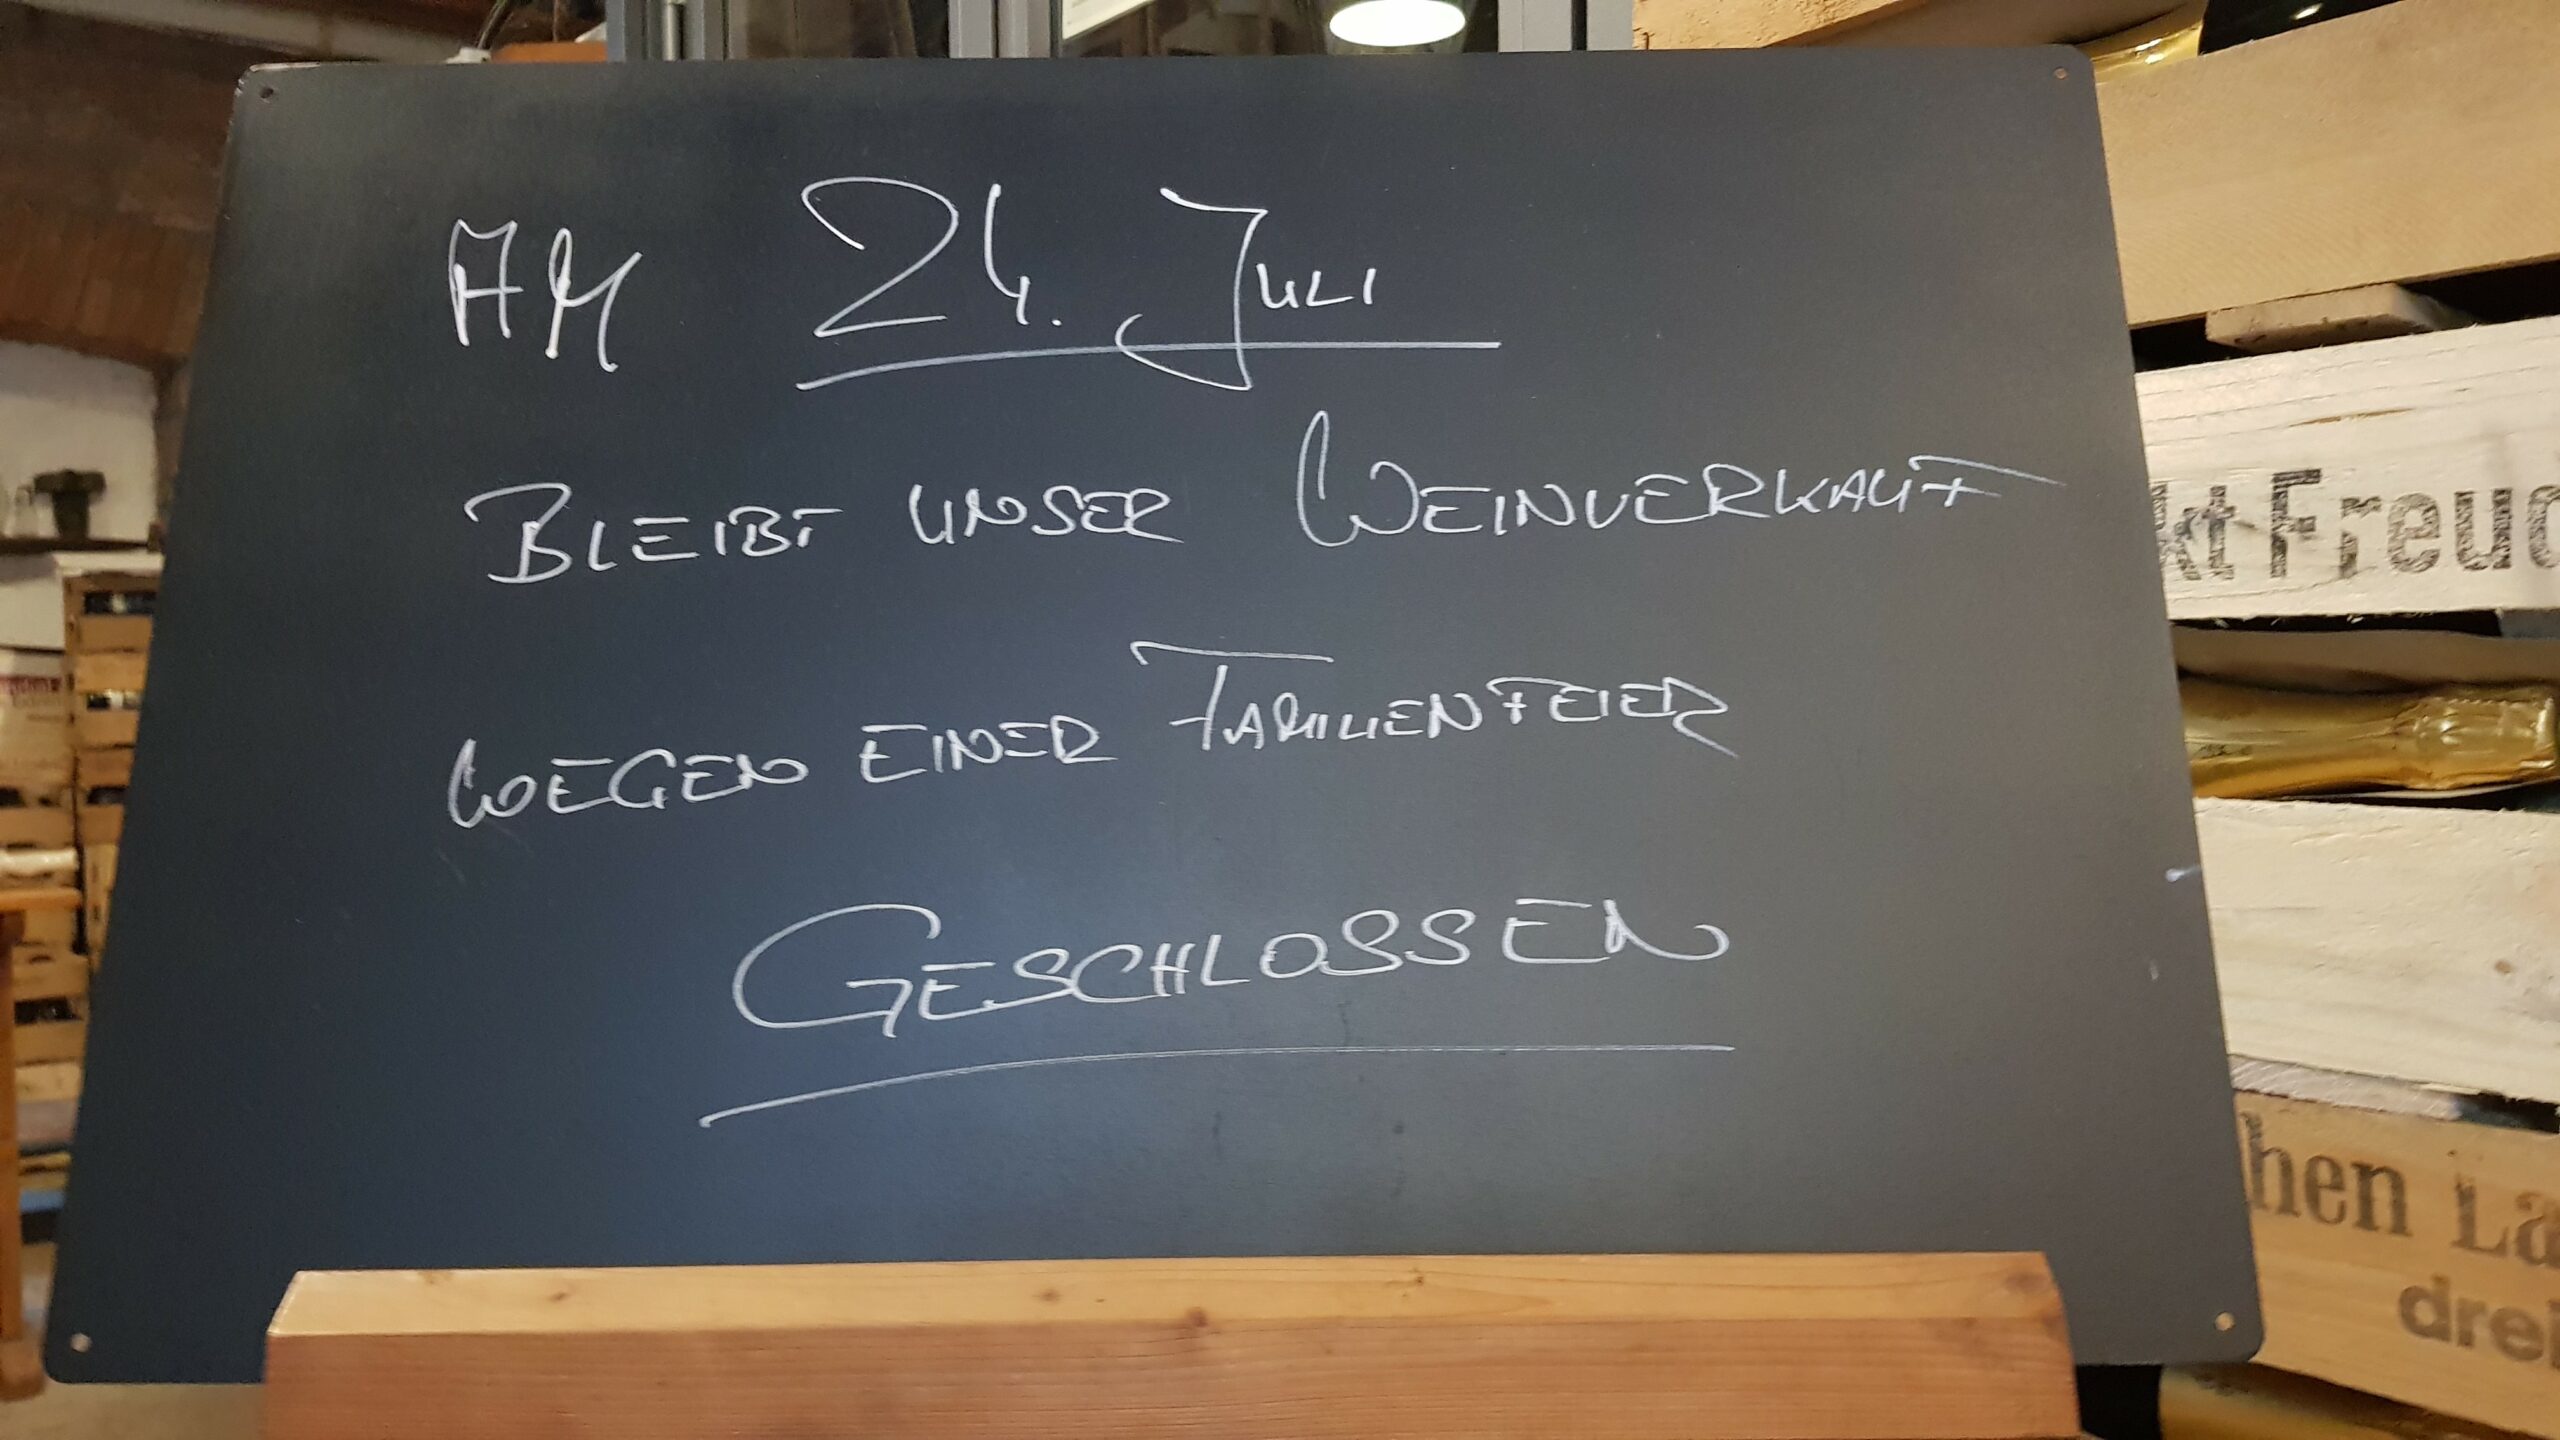 AM 24. JULI
BLEIBT UNSER WEINVERKAUF
WEGEN EINER FAMILIENFEIER
GESCHLOSSEN
ktFreud
hen La
drei